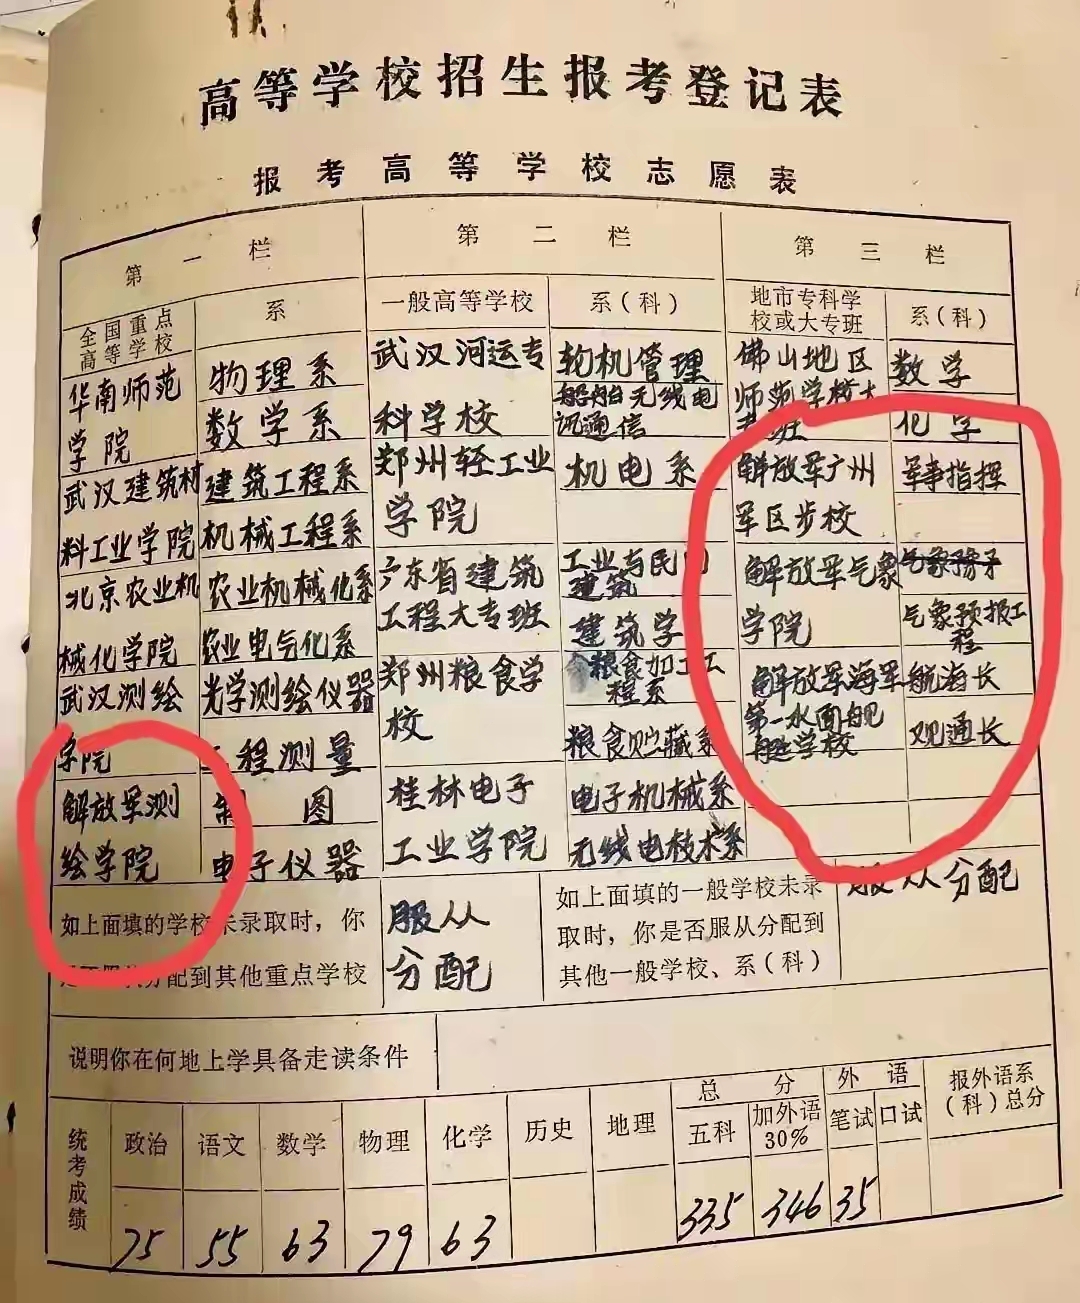 高等学校招生报考登记表
报考高等学校志愿表
第一栏
第二栏
第三栏
全国重点
高等学校
系
一般高等学校
系(科)
地市专科学
校或大专班
系(科)
华南师范
学院
物理系
数学系
武汉河运专
科学校
轮机管理
船舶无线电
讯通信
佛山地区
师范学校大
专班
数学
化学
武汉建筑材
料工业学院
建筑工程系
机械工程系
郑州轻工业
学院
机电系
解放军广州
军区步校
军事指挥
北京农业机
械化学院
农业机械化系
农业电气化系
广东省建筑
工程大专班
工业与民用
建筑
建筑学
解放军气象
学院
气象预报工
程
武汉测绘
学院
光学测绘仪器
工程测量
郑州粮食学
校
粮食加工工
程系
粮食贮藏系
解放军海军
第一水面舰
艇学校
航海长
观通长
解放军测
绘学院
制图
电子仪器
桂林电子
工业学院
电子机械系
无线电技术系
如上面填的学校未录取时，你
是否服从分配到其他重点学校
服从
分配
如上面填的一般学校未录
取时，你是否服从分配到
其他一般学校、系(科)
服从分配
说明你在何地上学具备走读条件
统考成绩
政治
语文
数学
物理
化学
历史
地理
总分
五科
加外语
30%
外语
笔试
口试
报外语系
(科)总分
75
55
63
79
63
335
346
35